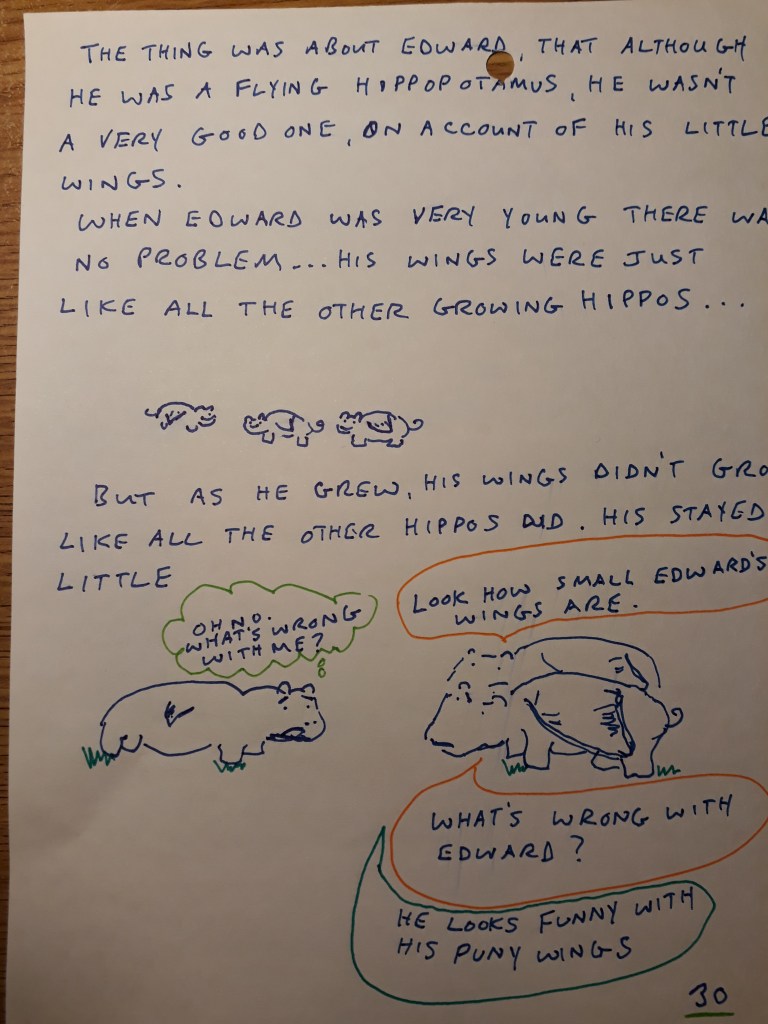 THE THING WAS ABOUT EDWARD, THAT ALTHOUGH
HE WAS A FLYING HIPPOPOTAMUS, HE WASN'T
A VERY GOOD ONE, ON ACCOUNT OF HIS LITTLE
WINGS.
WHEN EDWARD WAS VERY YOUNG THERE WA
NO PROBLEM... HIS WINGS WERE JUST
LIKE ALL THE OTHER GROWING HIPPOS...
BUT AS HE GREW, HIS WINGS DIDN'T GRO
LIKE ALL THE OTHER HIPPOS DID. HIS STAYED
LITTLE
OH NO.
WHAT'S WRONG
WITH ME?
LOOK HOW SMALL EDWARD'S
WINGS ARE.
WHAT'S WRONG WITH
EDWARD?
HE LOOKS FUNNY WITH
HIS PUNY WINGS
30